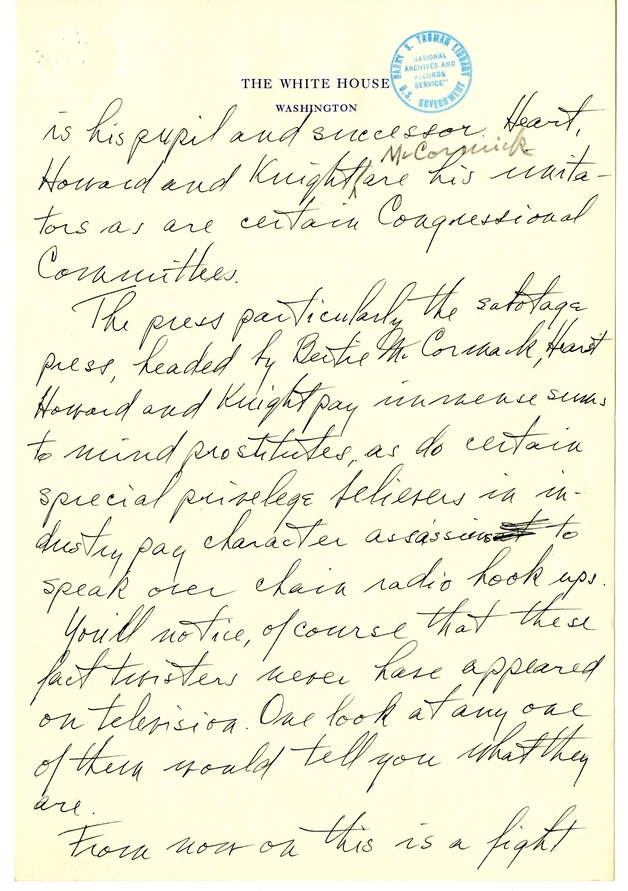 THE WHITE HOUSE
WASHINGTON
HARRY S. TRUMAN LIBRARY
NATIONAL
ARCHIVES AND
RECORDS
SERVICE
U.S. GOVERNMENT
is his pupil and successor. Heart,
McCormick
Howard and Knight are his imita-
tors as are certain Congressional
Committees.
The press particularly the sabotage
press, headed by Bertie McCormack, Hearst
Howard and Knight pay immense sums
to mind prostitutes, as do certain
special privelege believers in in-
dustry pay character assassins to
speak over chain radio hook ups.
You'll notice, of course that these
fact twisters never have appeared
on television. One look at any one
of them would tell you what they
are.
From now on this is a fight